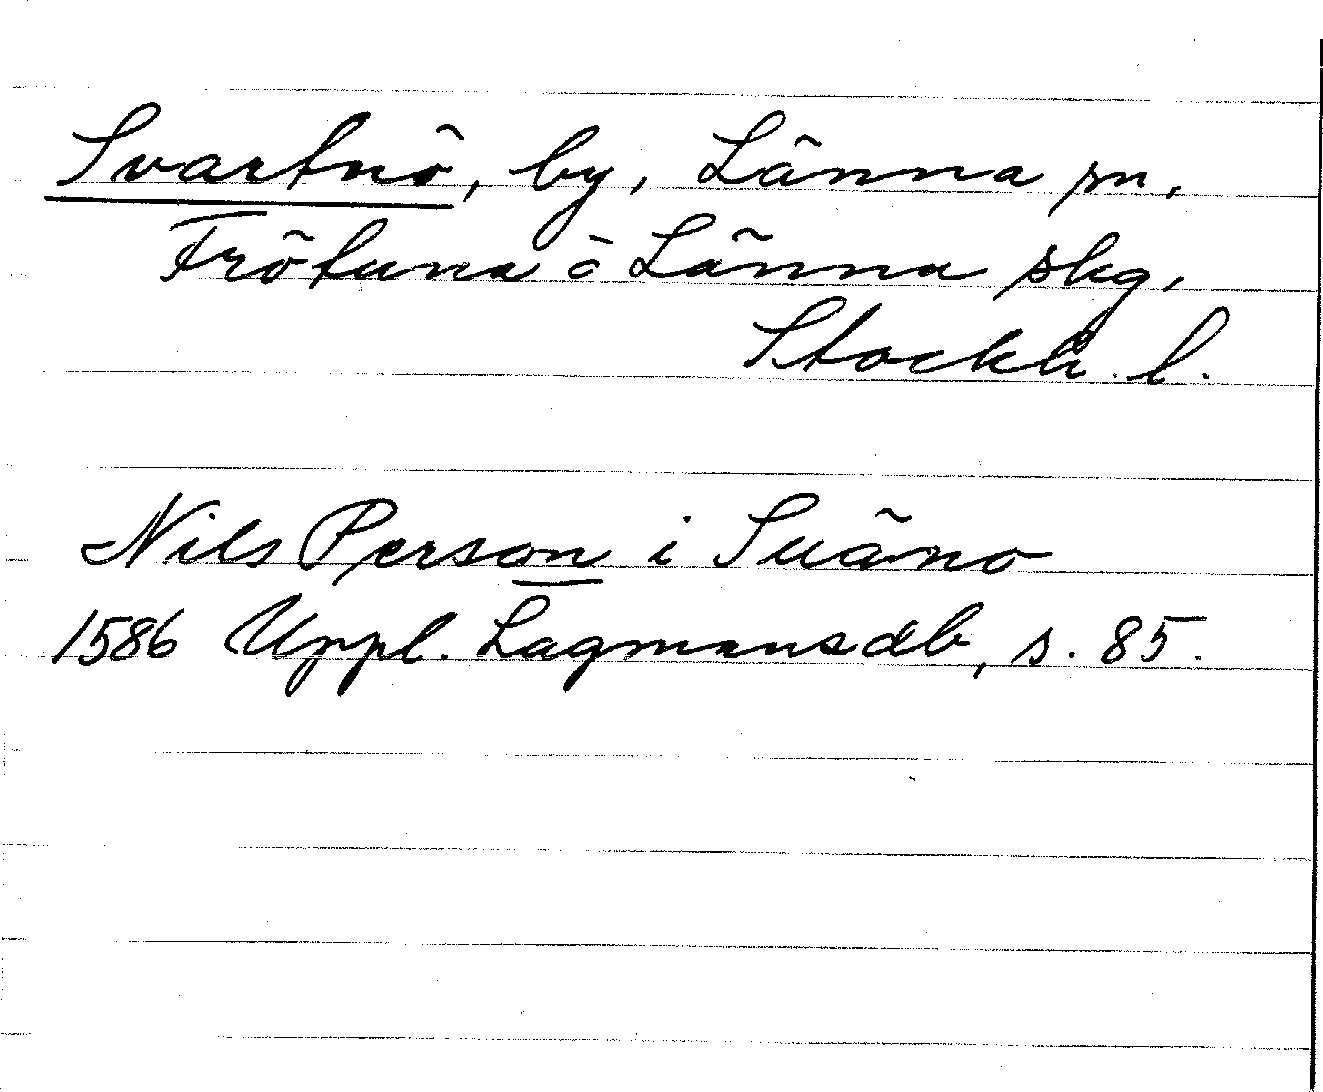 Svartnö, by, Länna sn,
Frötuna o Länna skg,
Stockh. l.
Nils Person i Suäno
1586 Uppl. Lagmansdb, s. 85.